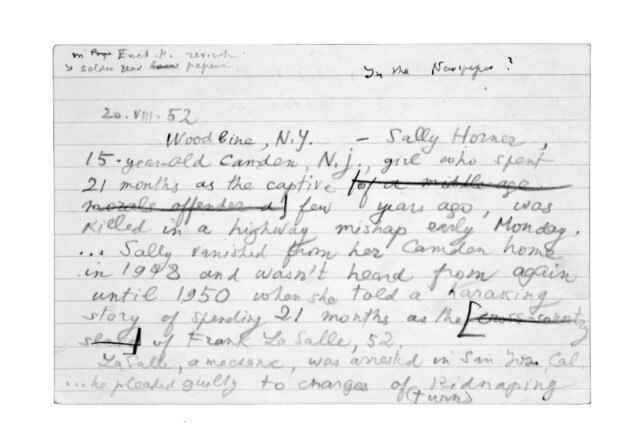 In the Newspaper?
seldom read papers
20.VIII.52
Woodbine, N.Y. – Sally Horner,
15-year-old Camden, N.J., girl who spent
21 months as the captive [of a middle-age
morals offender a] few years ago, was
killed in a highway mishap early Monday.
... Sally vanished from her Camden home
in 1948 and wasn't heard from again
until 1950 when she told a harassing
story of spending 21 months as the [cross-country
slave] of Frank LaSalle, 52.
LaSalle, a mechanic, was arrested in San Jose, Cal.
...he pleaded guilty to charges of kidnaping
(turn)